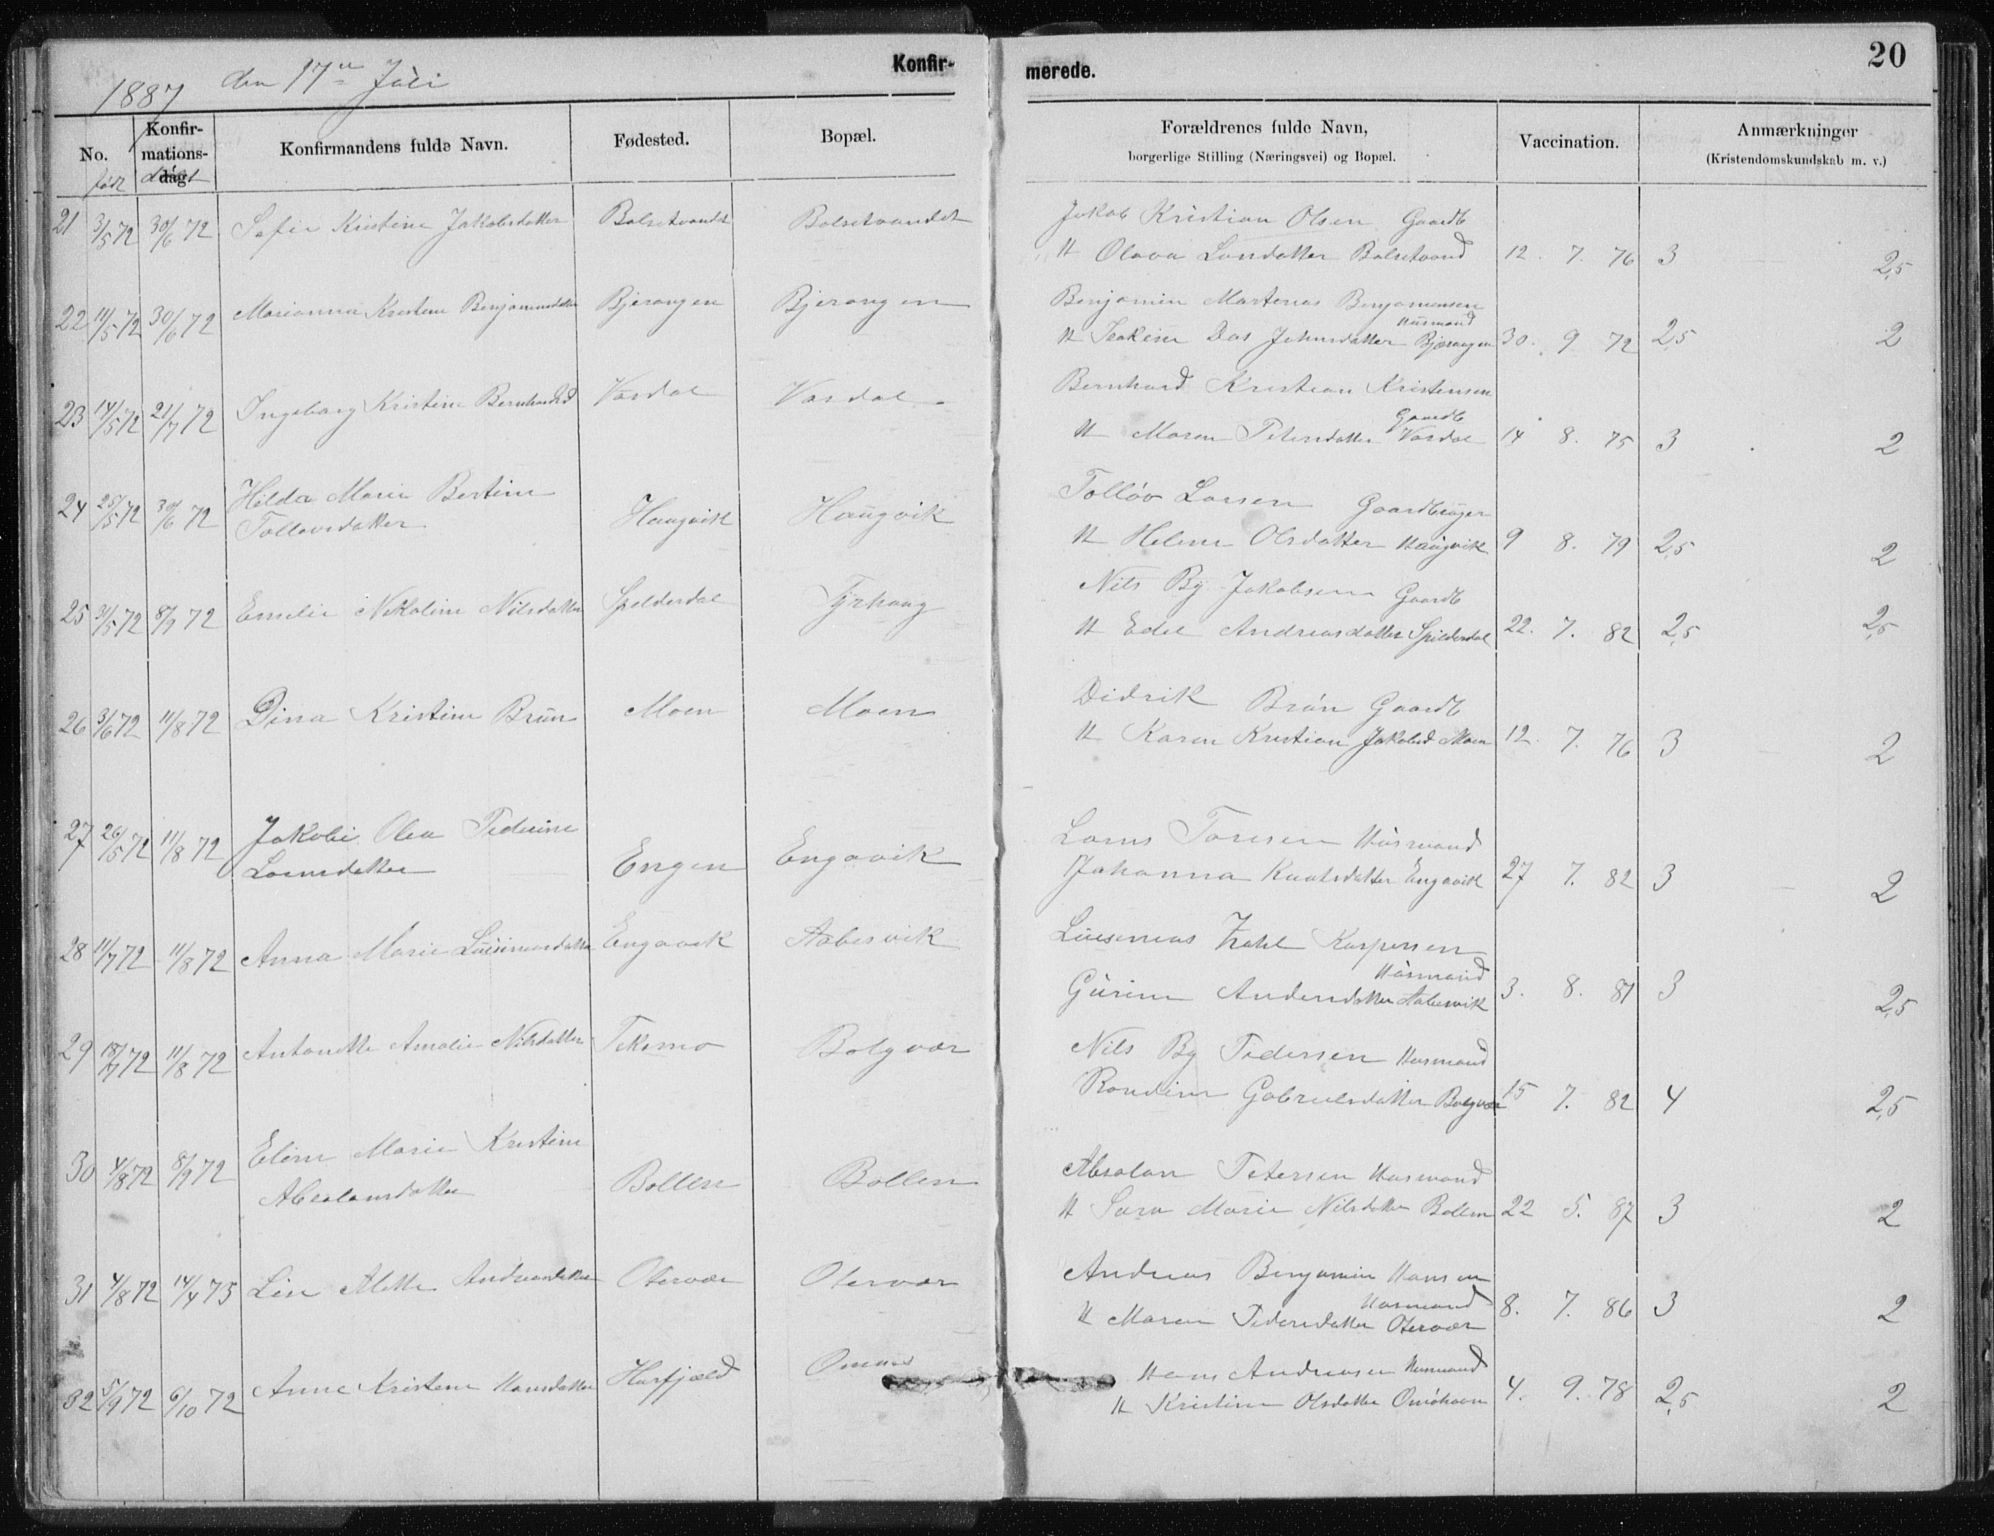 1887 den 17de Juli
Konfir-
merede.
20
No. født
Konfir-
mations-
dag
Konfirmandens fulde Navn.
Fødested.
Bopæl.
Forældrenes fulde Navn,
borgerlige Stilling (Næringsvei) og Bopæl.
Vaccination.
Anmærkninger
(Kristendomskundskab m. v.)
21 3/5 72 30/6 72 Sofie Kristine Jakobsdatter Bolsetvandet Bolsetvandet Jakob Kristian Olsen Gaardb
H Olava Larsdatter Bolsetvand 12. 7. 76 3 2,5
22 11/5 72 30/6 72 Marianna Kristine Benjaminsdatter Bjerangen Bjerangen Benjamin Martenas Benjaminsen
Husmand
H Das Johnsdatter Bjerangen 30. 9 72 2,5 2
23 14/5 72 21/7 72 Ingeborg Kristine Bernhardsd Vasdal Vasdal Bernhard Kristian Kristensen
Gaardb
H Maren Petersdatter Vasdal 14 8. 75 3 2
24 25/5 72 30/6 72 Hilda Marie Bertine
Tollovsdatter Haugvik Haugvik Tollov Larsen Gaardbruger
H Helene Olsdatter Haugvik 9 8. 79 2,5 2
25 31/5 72 8/9 72 Emelie Nikoline Nilsdatter Spilderdal Tyrhaug Nils By Jakobsen Gaardb
H Edel Andreasdatter Spilderdal 22. 7. 82 2,5 2,5
26 3/6 72 11/8 72 Dina Kristine Brun Moen Moen Didrik Brun Gaardb
H Karen Kristian Jakobsd Moen 12. 7. 76 3 2
27 26/5 72 11/8 72 Jakobi Olea Pederine
Larsdatter Engen Engavik Lars Toresen Husmand
Johanna Knutsdatter Engavik 27 7. 82 3 2
28 11/7 72 11/8 72 Anna Marie Engavik Aabesvik Zahl Kaspersen
Husmand
Gurine Andersdatter Aabesvik 3. 8. 81 3 2,5
29 18/7 72 11/8 72 Antonette Amalie Nilsdatter Tekemo Bolgvær Nils By Pedersen Husmand
Rondine Gabrielsdatter Bolgvær 15 7. 82 4 2,5
30 4/8 72 8/9 72 Eline Marie Kristine
Absalonsdatter Bollen Bollen Absalon Petersen Husmand
H Sara Marie Nilsdatter Bollen 22 5. 87 3 2
31 4/8 72 14/4 75 Lise Mette Andreasdatter Otervær Otervær Andreas Benjamin Hansen
Husmand
H Maren Pedersdatter Otervær 8. 7. 86 3 2
32 5/9 72 6/10 72 Anne Kristine Hansdatter Harfjæld Hans Andreasen Husmand
H Kristine Olsdatter Omøhavn 4. 9. 78 2,5 2